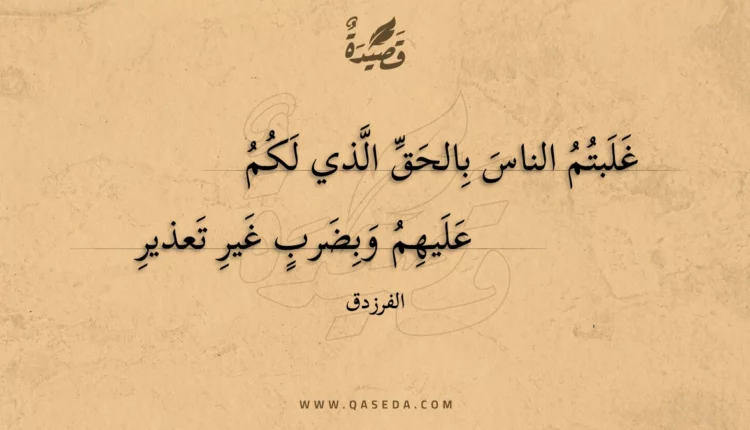 قَصِيدَةٌ
غَلَبتُمُ الناسَ بِالحَقِّ الَّذي لَكُمُ
عَلَيهِمُ وَبِضَربٍ غَيرِ تَعذيرِ
الفرزدق
WWW.QASEDA.COM